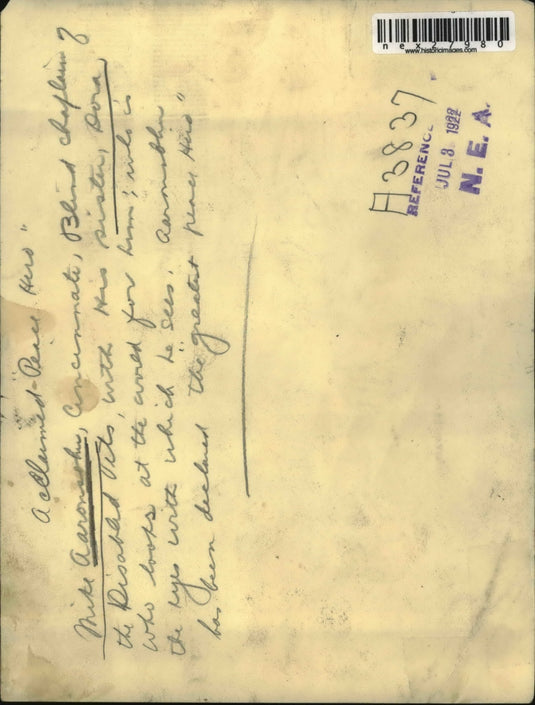 Acclaimed "Peace Hero"
Mike Aaronsohn, Cincinnati, Blind chaplain of
the Disabled Vets, with his sister, Dora,
who looks at the world for him; who is
the eyes with which he sees. Aaronsohn
has been declared the "greatest peace Hero"
A3837
REFERENCE
JUL 3 1922
N. E. A.
nex27980
www.historicimages.com